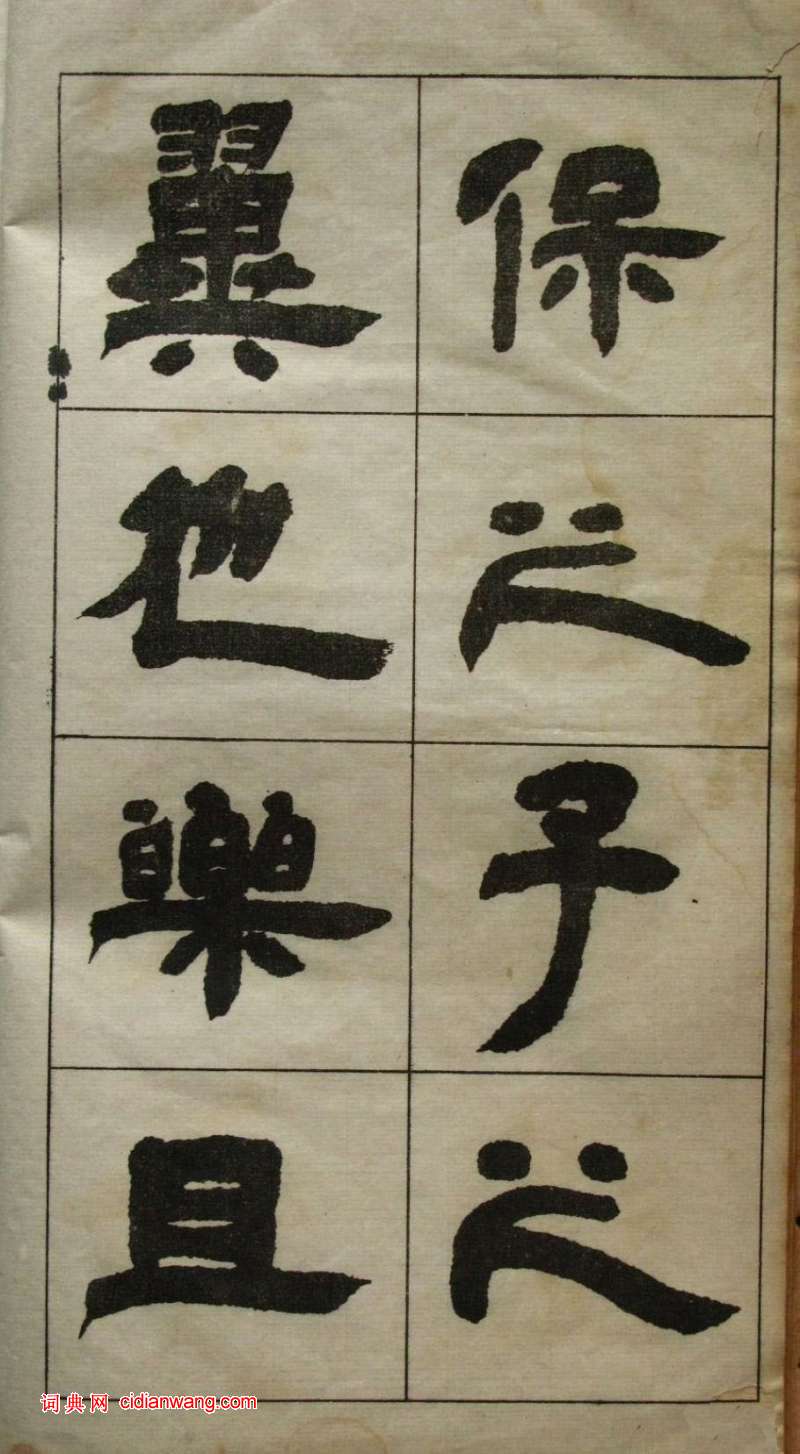 保之子之
翼也樂且
词典网 cidianwang.com